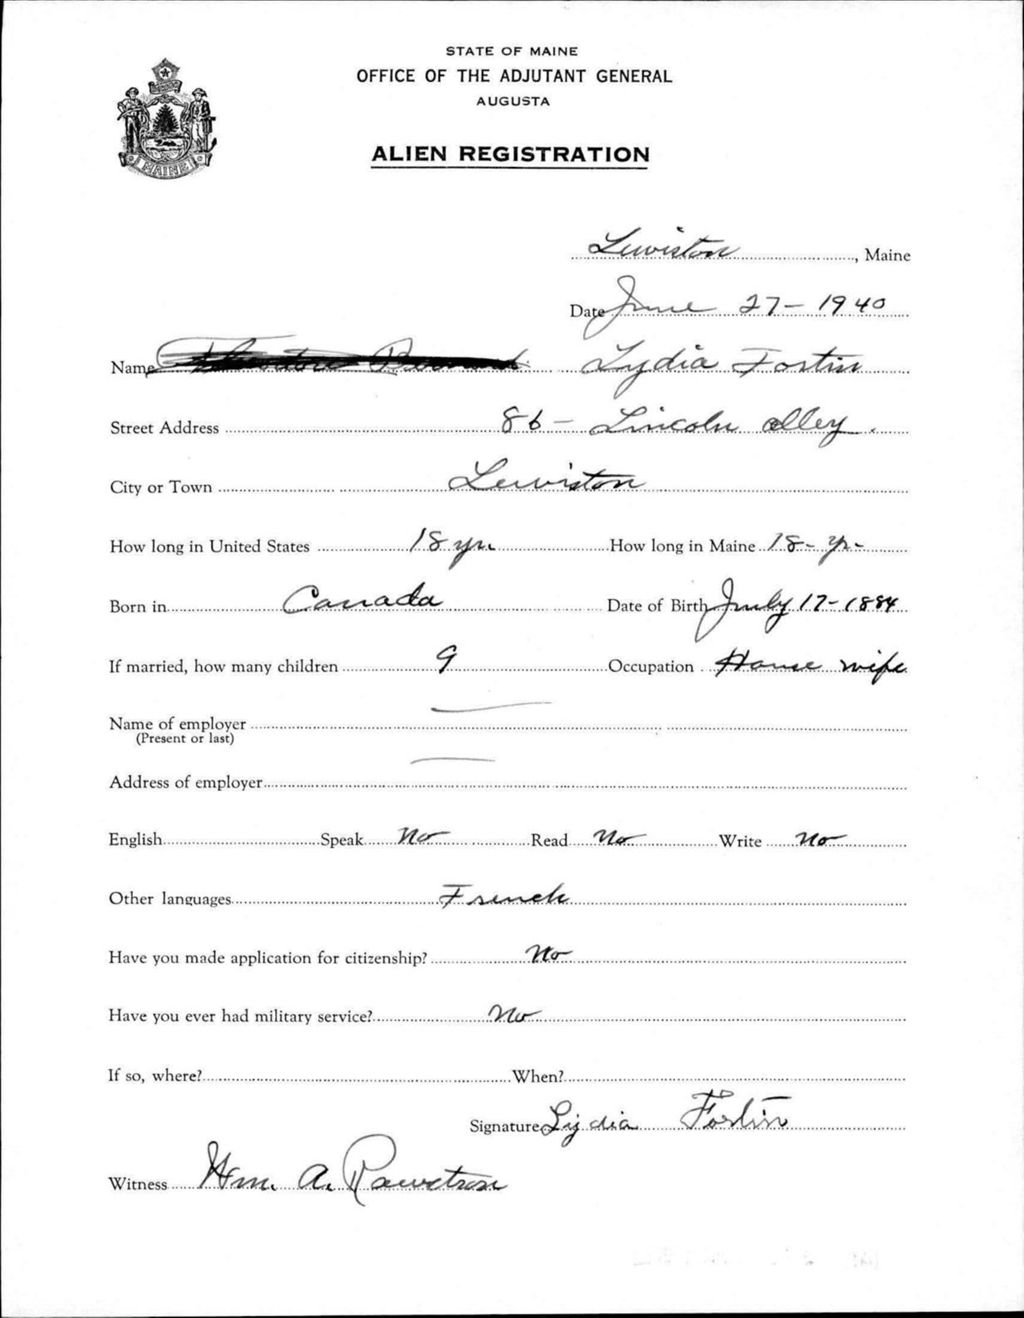 STATE OF MAINE
OFFICE OF THE ADJUTANT GENERAL
AUGUSTA
ALIEN REGISTRATION
MAINE
Lewiston, Maine
Date June 27-1940
Name Lydia Fortin
Street Address 86 - Lincoln alley.
City or Town Lewiston
How long in United States 18 yrs How long in Maine 18- yr-
Born in Canada Date of Birth July 17-1884
If married, how many children 9 Occupation House wife
Name of employer
(Present or last)
Address of employer
English Speak No Read No Write No
Other languages French
Have you made application for citizenship? No
Have you ever had military service? No
If so, where? When?
Signature Lydia Fortin
Witness Wm. A.